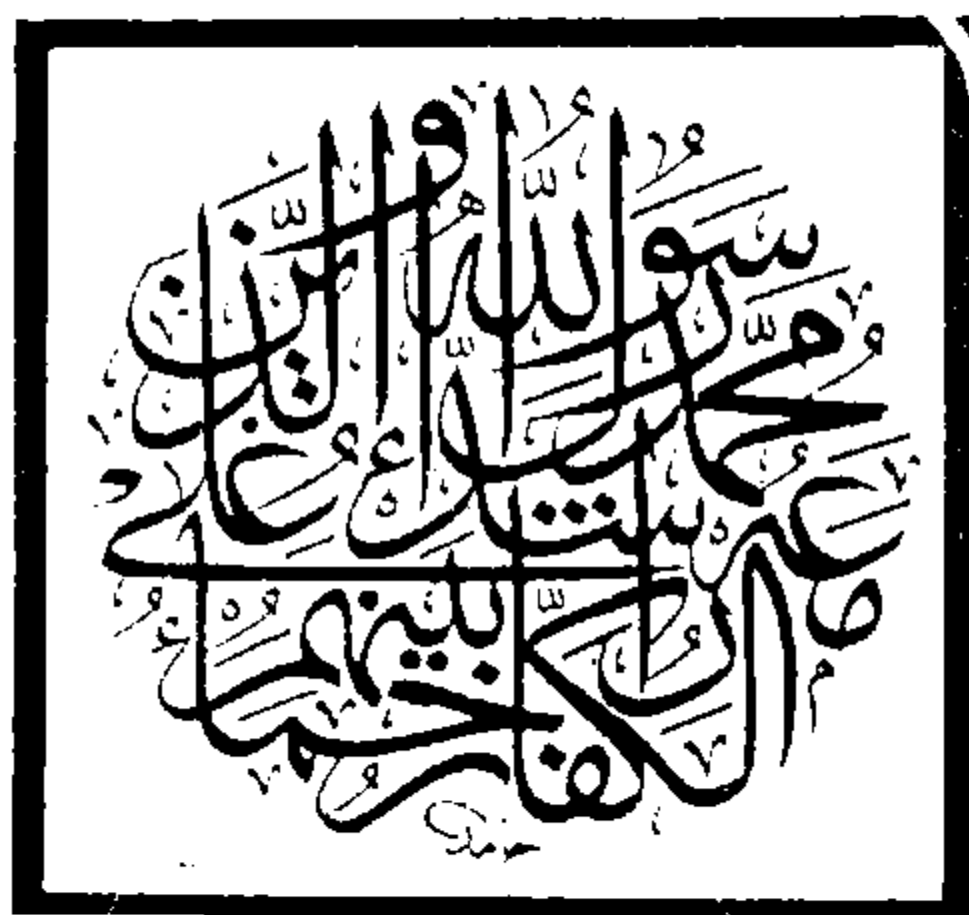 مُحَمَّدٌ رَسُولُ اللَّهِ وَالَّذِينَ مَعَهُ أَشِدَّاءُ عَلَى الْكُفَّارِ رُحَمَاءُ بَيْنَهُمْ